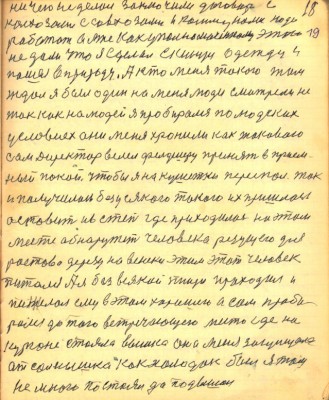 ничего не дали заключили договора с 18
колхозами с совхозами в колхоз, нами люди
работают а я же как уполномоченному этого 19
не дали что я сделал скинул одежду и
пошел в природу. А кто меня такого там
ждал я был один на меня люди смотрели не
так как на людей я пробирался по людских
условиях они меня хронили как такового
сам директор велел фельдшеру принять в прием-
ный покой, чтобы я на кушетки переспал. так
и получилось безо всякого такого их пришлось
оставить и в степ где приходилось на этом
месте обнаружит человека режущего для
ростово дерева на веники этим этот человек
питался А я без всякой пищи приходил и
пожелал ему в этом хорошего а сам проби-
рался до того встречающего место где на
кургоне стояла вышка она меня защищала
от солнышка как холодок был я там
не много постоял да подвигом